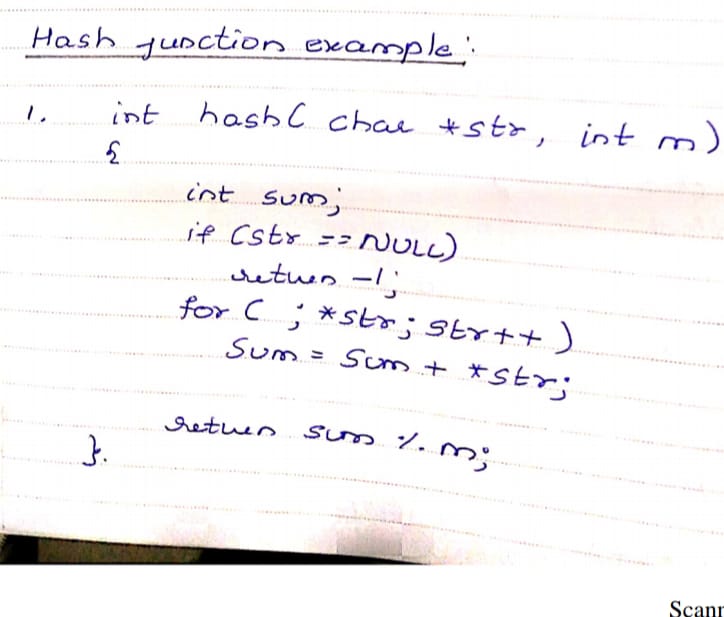 Hash function example:
1. int hash( char *str, int m)
{
int sum;
if (str == NULL)
return -1;
for ( ; *str; str++ )
sum = sum + *str;
return sum % m;
}.